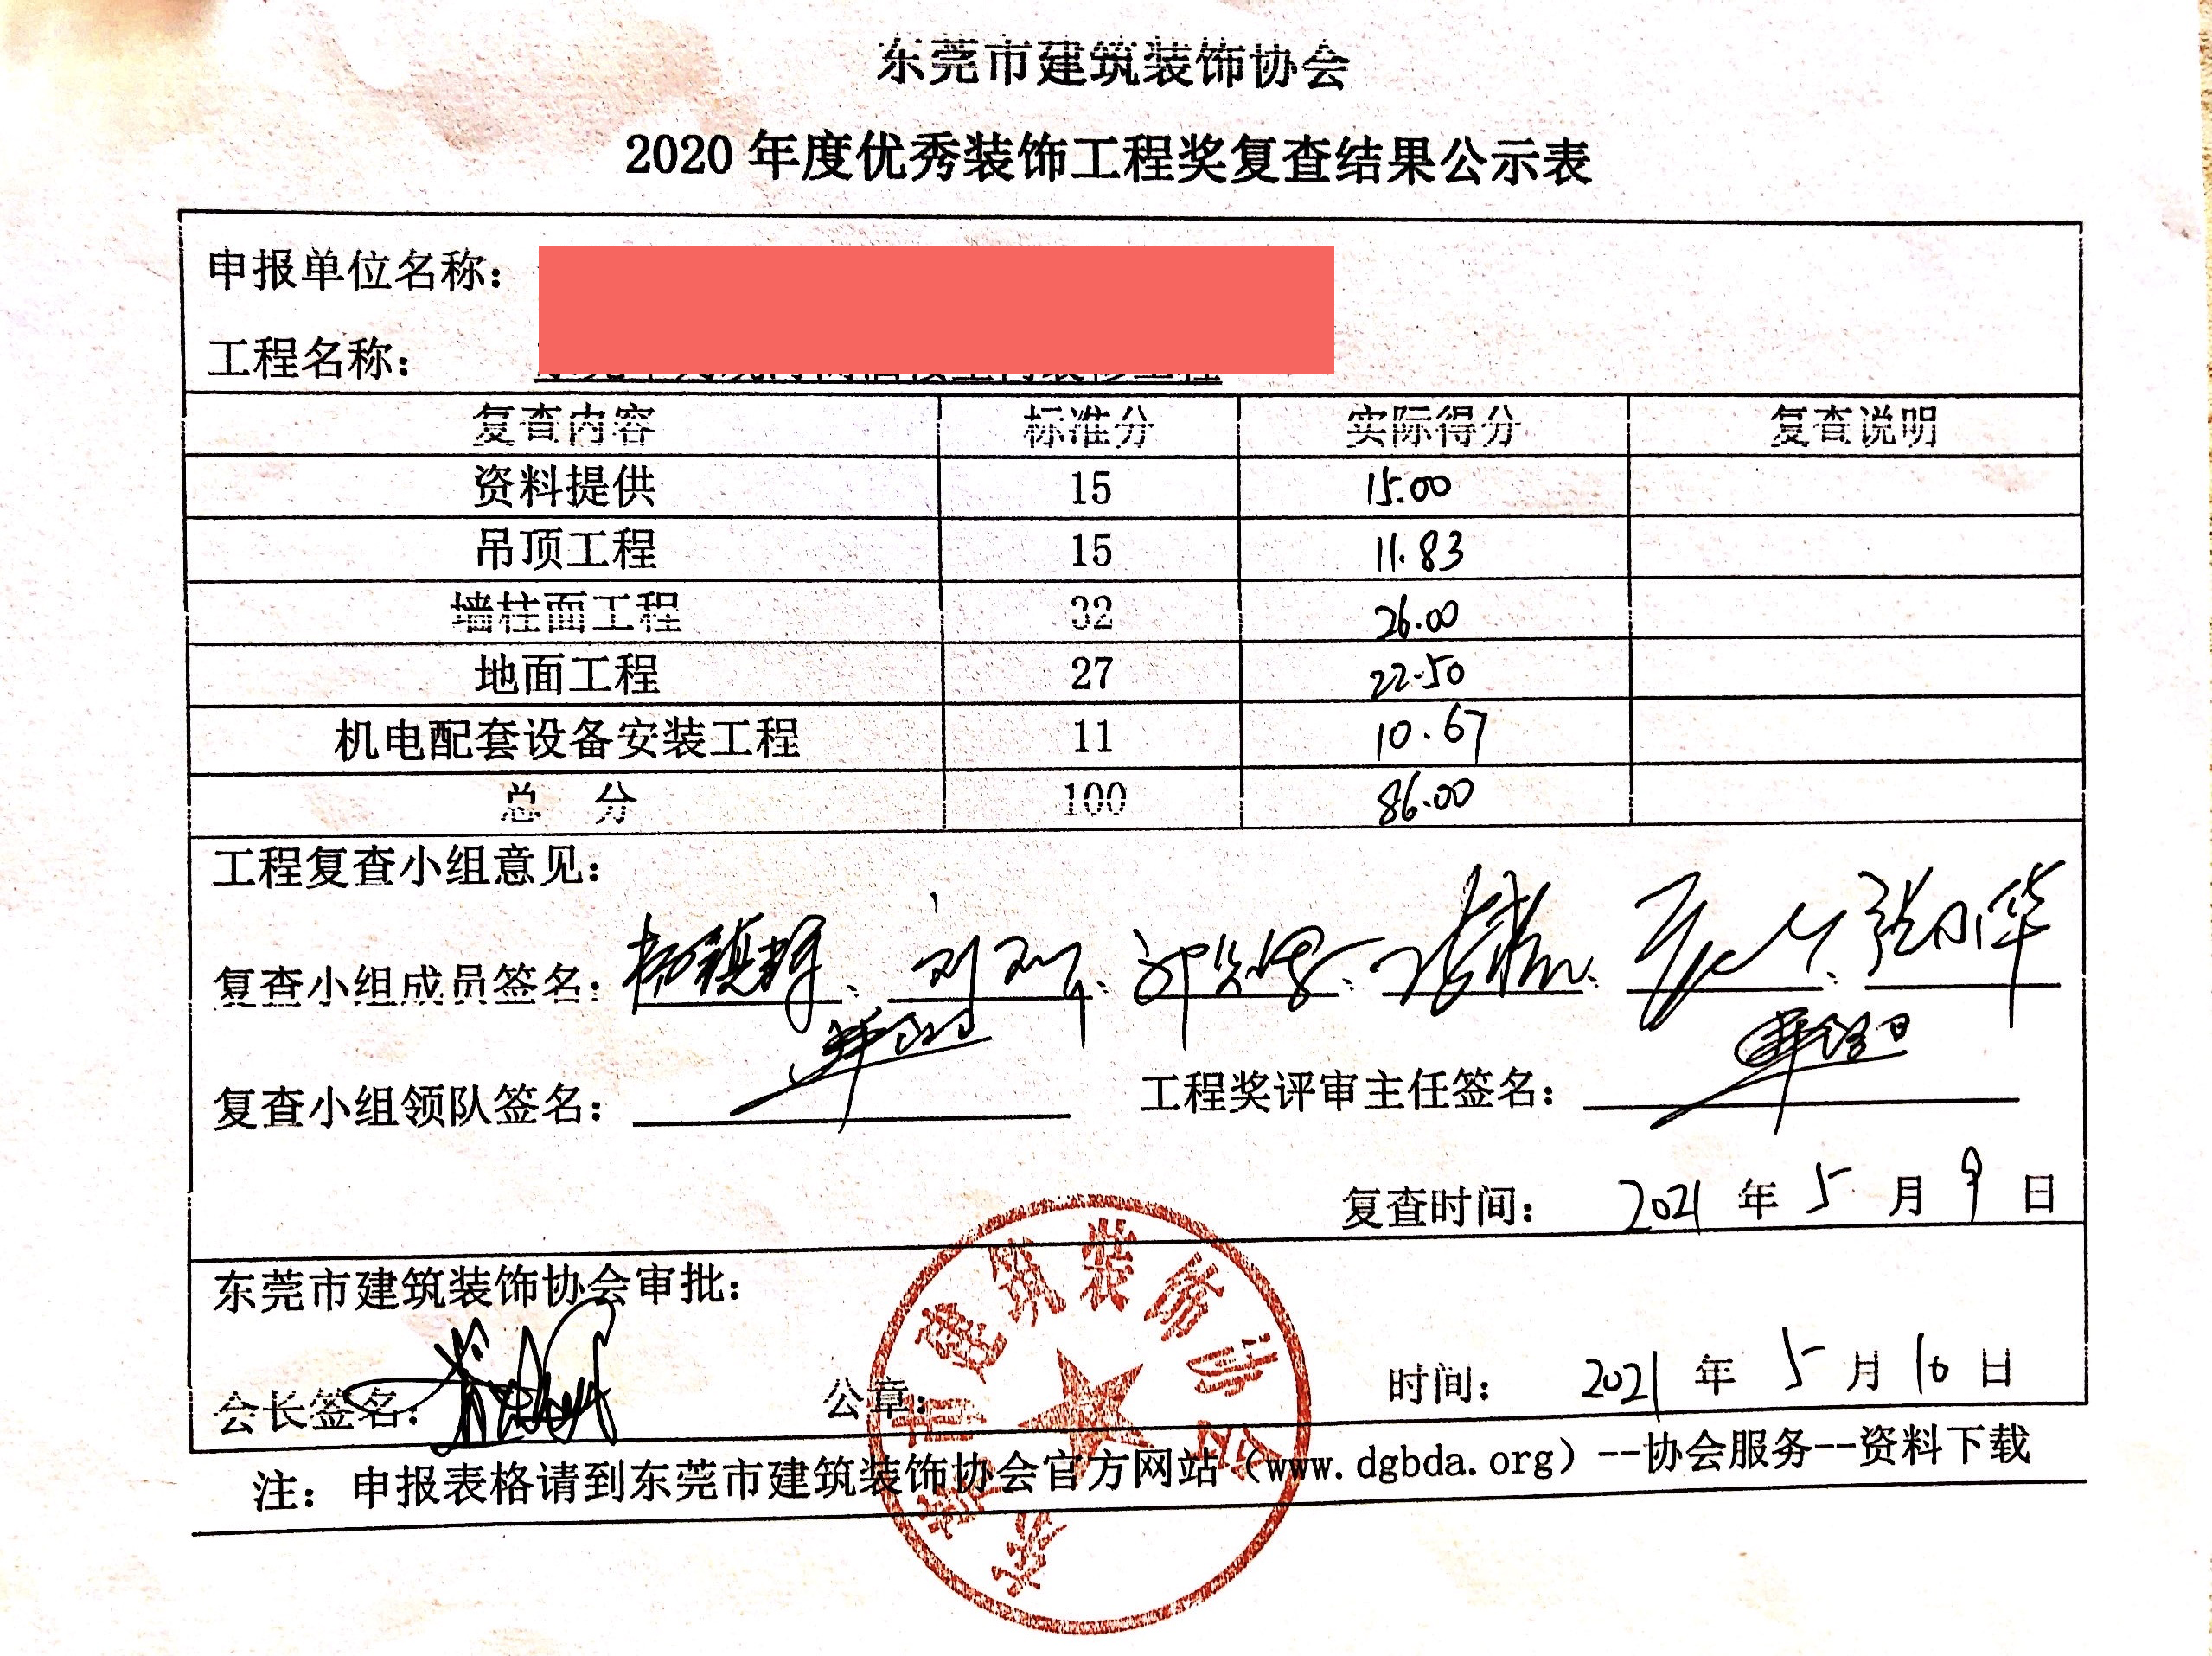 东莞市建筑装饰协会
2020 年度优秀装饰工程奖复查结果公示表
申报单位名称：
工程名称：
复查内容 标准分 实际得分 复查说明
资料提供 15 15.00
吊顶工程 15 11.83
墙柱面工程 32 26.00
地面工程 27 22.50
机电配套设备安装工程 11 10.67
总 分 100 86.00
工程复查小组意见：
复查小组成员签名： 、 、 、 、 、 张小华
复查小组领队签名： 工程奖评审主任签名：
复查时间： 2021 年 5 月 9 日
东莞市建筑装饰协会审批：
会长签名： 公章： 时间： 2021 年 5 月 10 日
东莞市建筑装饰协会
注：申报表格请到东莞市建筑装饰协会官方网站（www.dgbda.org）--协会服务--资料下载